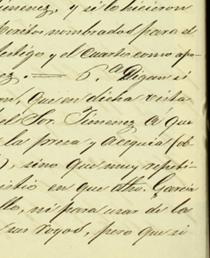 imenez, y si lo hicieron
peritos nombrados para el
testigo y el cuarto como apo-
ez. 6ª Digan si
on, que en dicha vista
el Sor. Jimenez a que
la presa y acequia
), sino que muy
istio en que dho. Garcia
llo, ni para usar de la
un royos, pero que si